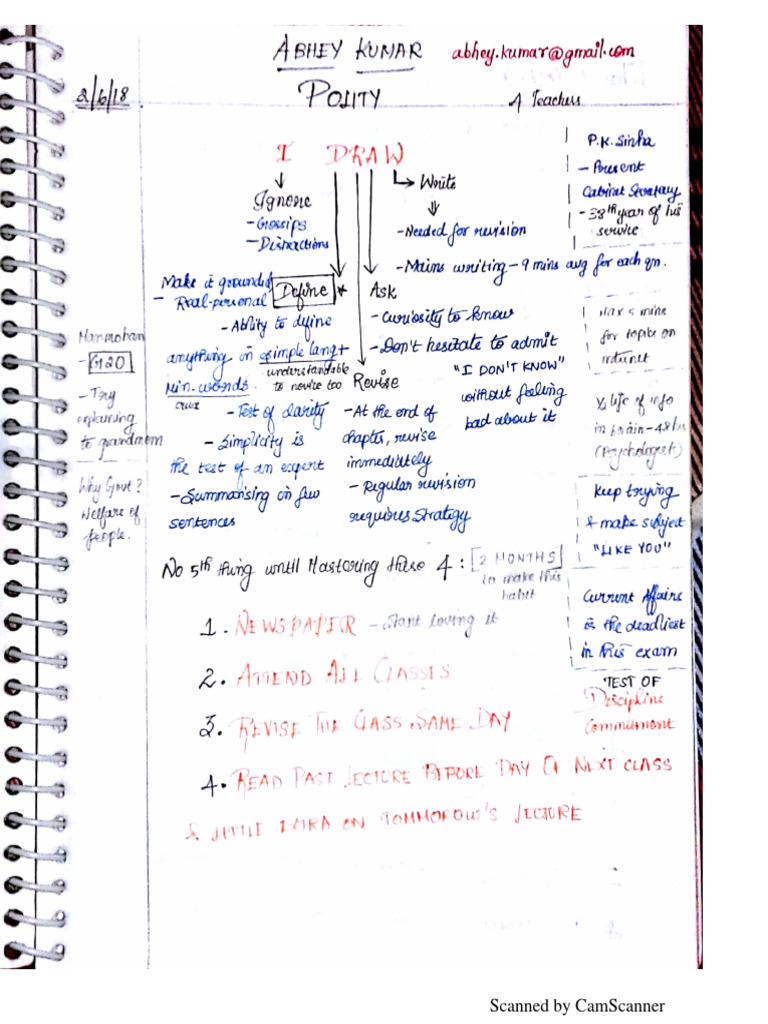 ABHEY KUMAR abhey.kumar@gmail.com
2/6/18 POLITY 4 Teachers
I DRAW
Ignore
- Gossips
- Distractions
Write
- Needed for revision
- Mains writing - 9 mins avg for each qn.
P.K. Sinha
- Present
Cabinet Secretary
- 38th year of his
service
Make it grounded
- Real-personal
Define *
- Ability to define
anything in simple lang +
understandable
to novice too
Min. words
crux
- Test of clarity
- Simplicity is
the test of an expert
- Summarising in few
sentences
Ask
- Curiosity to know
- Don't hesitate to admit
"I DON'T KNOW"
without feeling
bad about it
Revise
- At the end of
chapter, revise
immediately
- Regular revision
requires strategy
Manmohan
- G20
- Try
explaining
to grandmom
Why Govt?
Welfare of
people.
Max 5 mins
for topics on
internet
½ life of info
in brain - 48 hrs
(Psychologist)
Keep trying
& make subject
"LIKE YOU"
Current Affairs
is the deadliest
in this exam
TEST OF
Discipline
Commitment
No 5th thing until Mastering these 4 : [2 MONTHS]
to make this
habit
1. NEWSPAPER - start loving it
2. ATTEND ALL CLASSES
3. REVISE THE CLASS SAME DAY
4. READ PAST LECTURE BEFORE DAY OF NEXT CLASS
& LITTLE EXTRA ON TOMMOROW'S LECTURE
Scanned by CamScanner